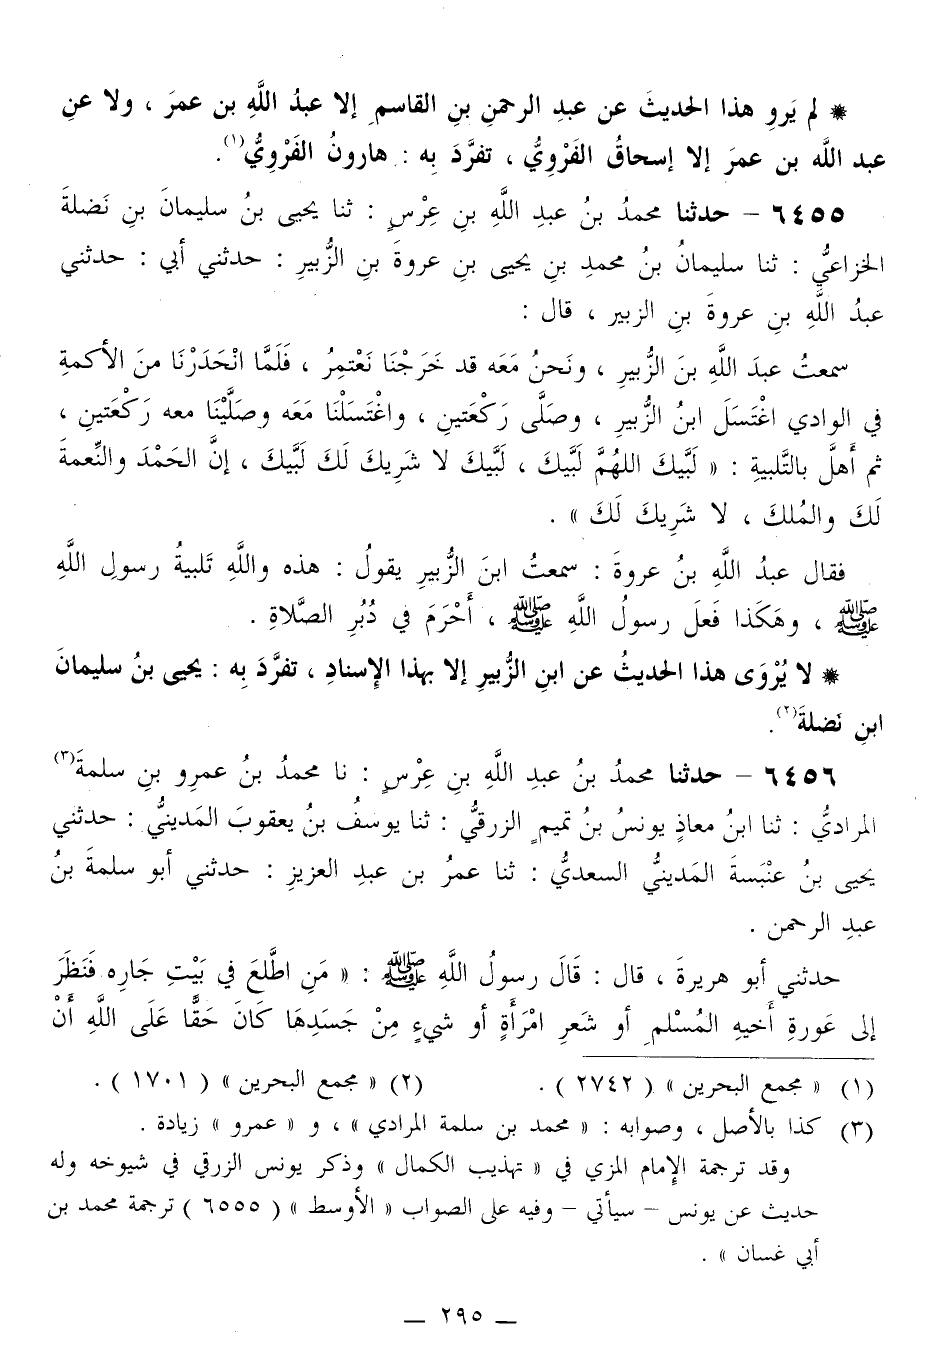 * لم يَروِ هذا الحديثَ عن عبدِ الرحمنِ بنِ القاسمِ إلا عبدُ اللَّهِ بن عمرَ ، ولا عن
عبد اللَّه بن عمرَ إلا إسحاقُ الفَرْوِيُّ ، تفرَّدَ به : هارونُ الفَرْوِيُّ(١).
٦٤٥٥ – حدثنا محمدُ بنُ عبدِ اللَّهِ بنِ عِرْسٍ : ثنا يحيى بنُ سليمانَ بنِ نَضلةَ
الخزاعيُّ : ثنا سليمانُ بنُ محمدِ بنِ يحيى بنِ عروةَ بنِ الزُّبيرِ : حدثني أبي : حدثني
عبدُ اللَّهِ بنِ عروةَ بنِ الزبير ، قال :
سمعتُ عبدَ اللَّهِ بنَ الزُّبيرِ ، ونَحنُ مَعَه قد خَرَجْنَا نَعْتمِرُ ، فَلَمَّا انْحَدَرْنَا منَ الأكمةِ
في الوادي اغْتَسَلَ ابنُ الزُّبيرِ ، وصَلَّى رَكْعَتينِ ، واغْتَسَلْنَا مَعَه وصَلَّيْنَا معه رَكْعَتينِ ،
ثم أَهلَّ بالتَّلبيةِ : « لَبَّيكَ اللهُمَّ لَبَّيكَ ، لَبَّيكَ لا شَرِيكَ لَكَ لَبَّيكَ ، إنَّ الحَمْدَ والنِّعمةَ
لَكَ والمُلكَ ، لا شَرِيكَ لَكَ » .
فقال عبدُ اللَّهِ بنُ عروةَ : سمعتُ ابنَ الزُّبيرِ يقولُ : هذه واللَّهِ تَلبيةُ رسولِ اللَّهِ
ﷺ ، وهَكَذا فَعلَ رسولُ اللَّهِ ﷺ ، أَحْرَمَ في دُبُرِ الصَّلاةِ .
* لا يُرْوَى هذا الحديثُ عن ابنِ الزُّبيرِ إلا بهذا الإسنادِ ، تفرَّدَ بِه : يحيى بنُ سليمانَ
ابنِ نَضلةَ(٢).
٦٤٥٦ – حدثنا محمدُ بنُ عبدِ اللَّهِ بنِ عِرْسٍ : نا محمدُ بنُ عمرِو بنِ سلمةَ(٣)
المراديُّ : ثنا ابنُ معاذٍ يونسُ بنُ تميمٍ الزرقيُّ : ثنا يوسفُ بنُ يعقوبَ المَدينيُّ : حدثني
يحيى بنُ عنْبسةَ المَدينيُّ السعديُّ : ثنا عمرُ بن عبدِ العزيزِ : حدثني أبو سلمةَ بنُ
عبدِ الرحمن .
حدثني أبو هريرةَ ، قال : قَالَ رسولُ اللَّهِ ﷺ : « مَن اطَّلعَ في بَيْتِ جَارِه فَنَظَرَ
إلى عَورةِ أَخيهِ المُسْلمِ أو شَعرِ امْرَأَةٍ أو شيءٍ مِنْ جَسَدِهَا كَانَ حَقًّا عَلَى اللَّهِ أَنْ
(١) « مجمع البحرين » ( ٢٧٤٢ ) . (٢) « مجمع البحرين » ( ١٧٠١ ) .
(٣) كذا بالأصل ، وصوابه : « محمد بن سلمة المرادي » ، و « عمرو » زيادة .
وقد ترجمة الإمام المزي في « تهذيب الكمال » وذكر يونس الزرقي في شيوخه وله
حديث عن يونس – سيأتي – وفيه على الصواب « الأوسط » ( ٦٥٥٥ ) ترجمة محمد بن
أبي غسان » .
— ٢٩٥ —